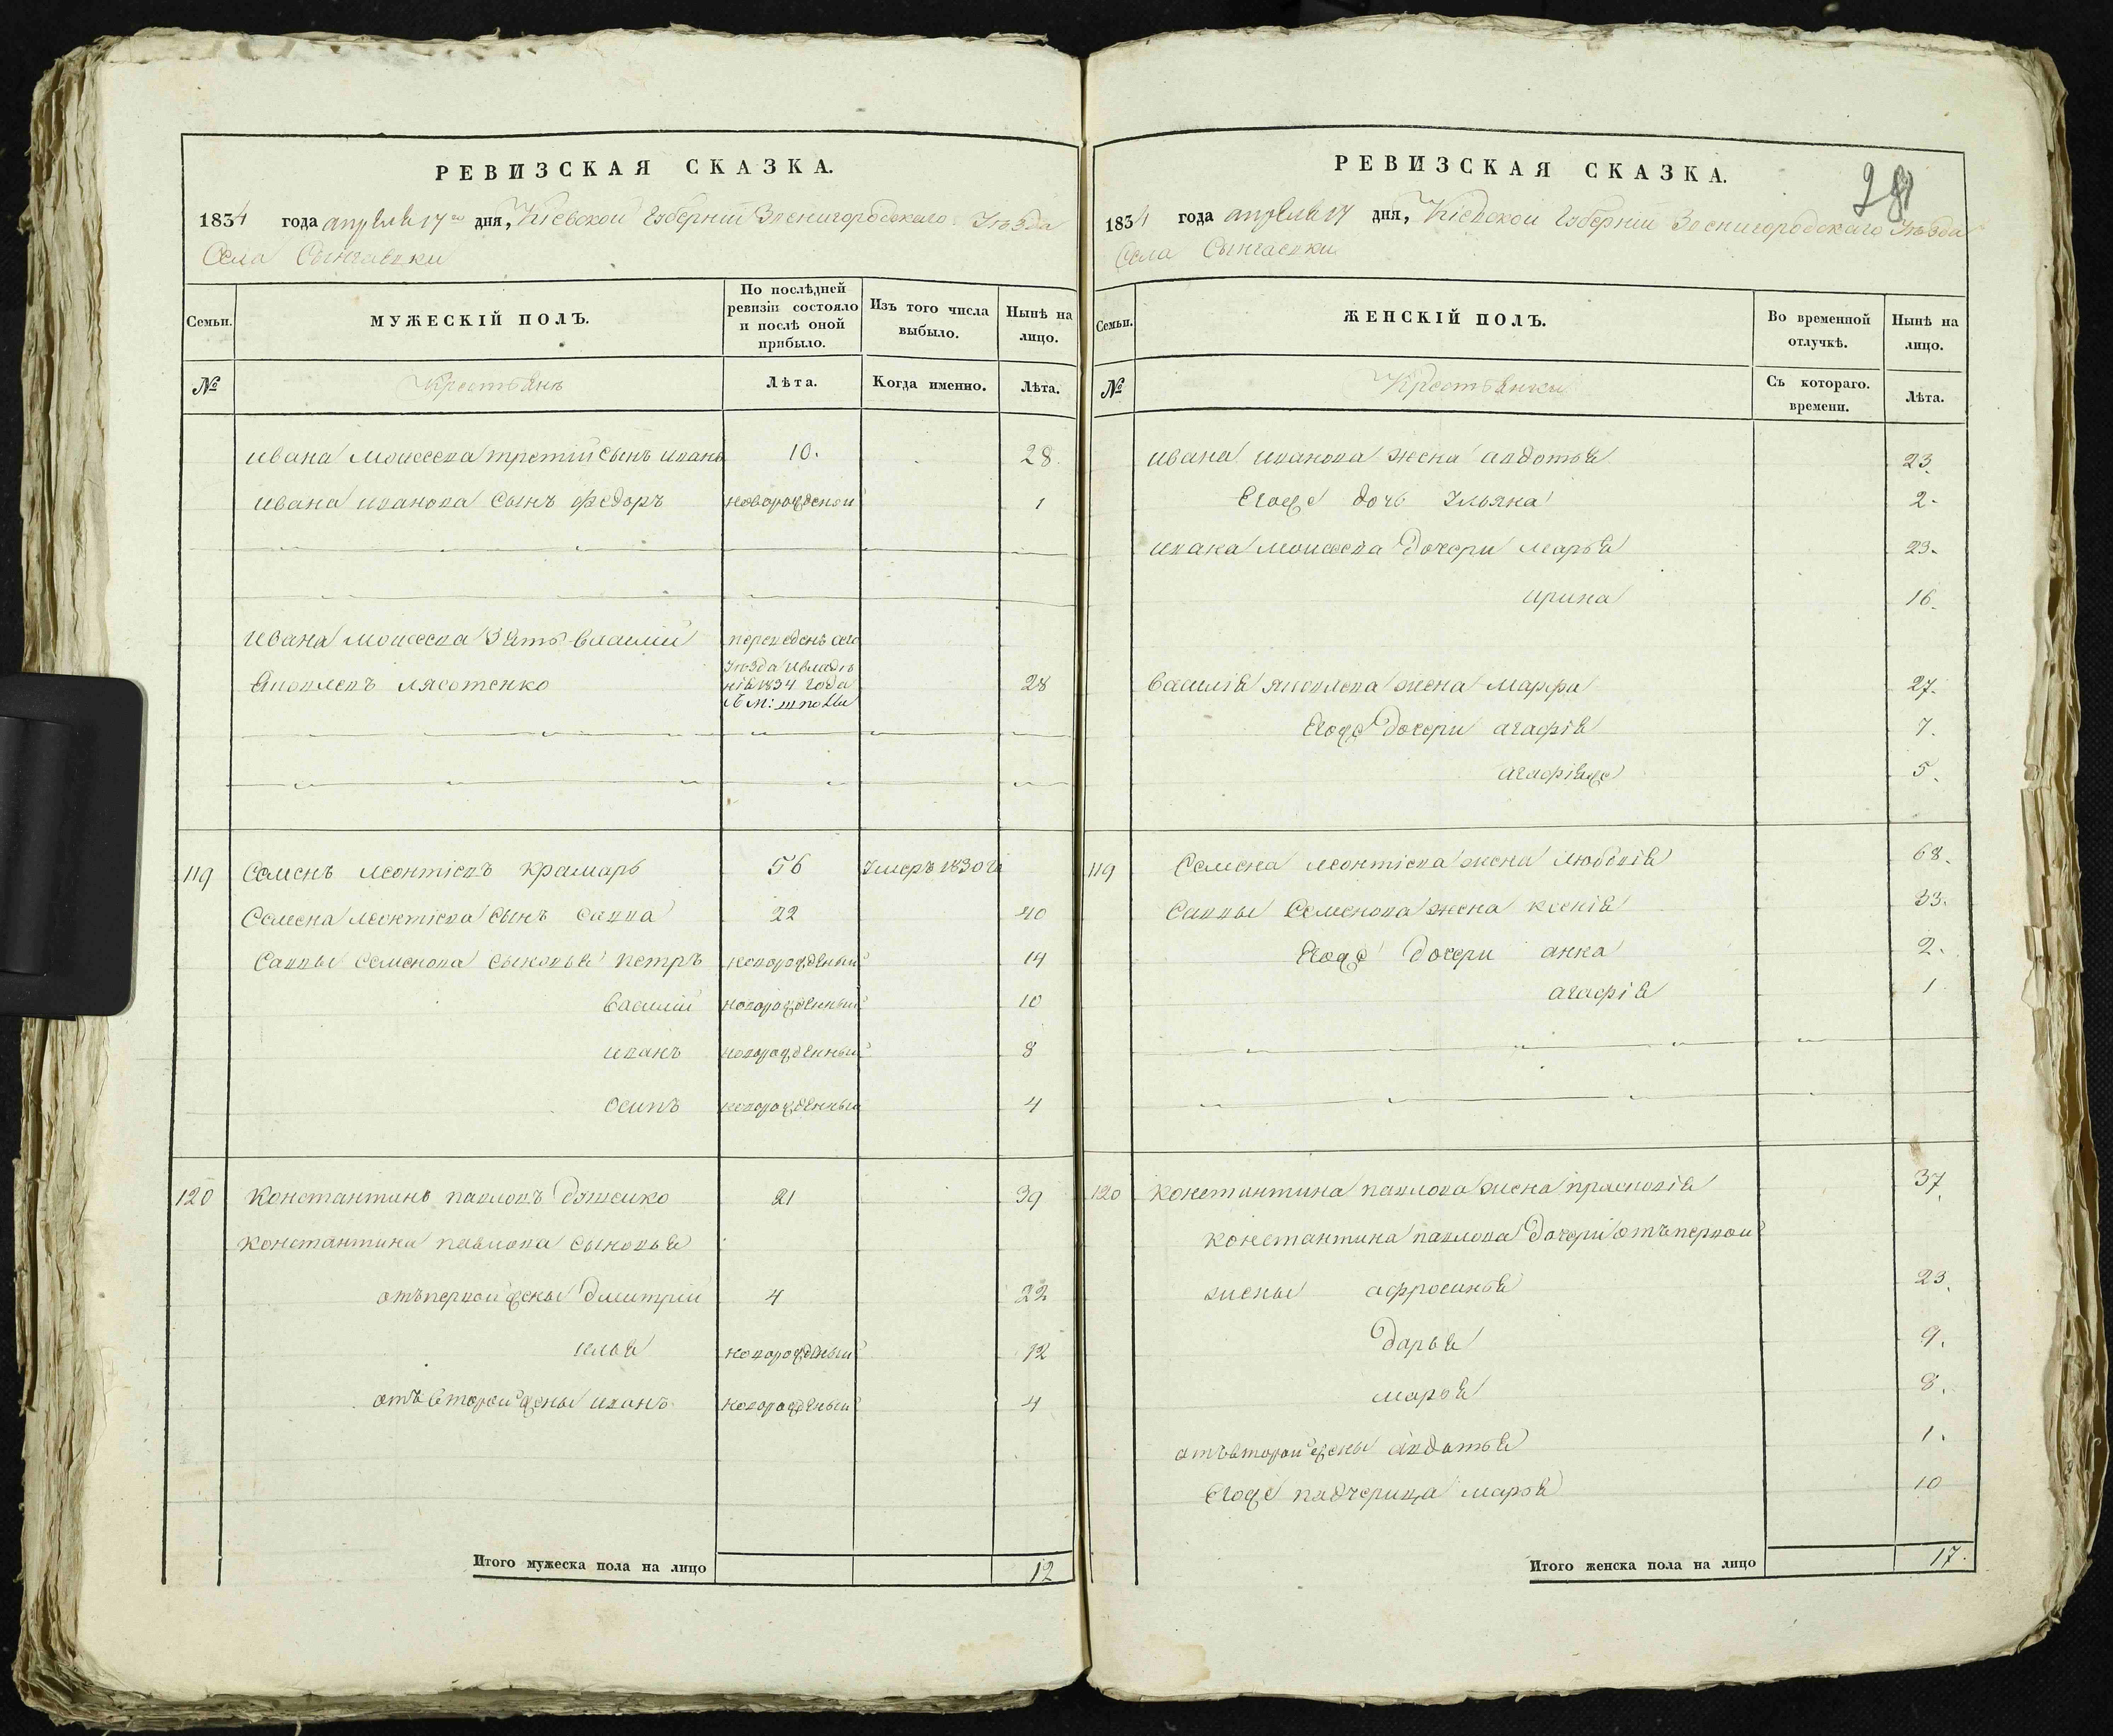 РЕВИЗСКАЯ СКАЗКА.
1834 года апреля 17го дня, Кіевской Губерніи Звенигородскаго Уѣзда
Села
Семьи. МУЖЕСКІЙ ПОЛЪ. По послѣдней ревизіи состояло и послѣ оной прибыло. Изъ того числа выбыло. Нынѣ на лицо.
№ Крестьянъ Лѣта. Когда именно. Лѣта.
Ивана Моисеева третій сынъ Иванъ 10. 28.
Ивана Иванова сынъ федоръ новорожденой 1
Ивана Моисеева Зять Василій переведенъ сего
Уѣзда Ивладѣ
Яковлевъ нія 1834 года 28
м: шполы
119 Семенъ Леонтіевъ Крамаръ 56 Умеръ 1830 го
Семена Леонтіева сынъ Савва 22 40
Саввы Семенова сыновья Петръ новорожденный 14
Василій новорожденный 10
Иванъ новорожденный 8
Осипъ новорожденный 4
120 Константинъ Павловъ 21 39
Константина Павлова сыновья
отъ первой жены Дмитрій 4 22
Илья новорожденый 12
отъ второй жены Иванъ новорожденый 4
Итого мужеска пола на лицо 12
28
РЕВИЗСКАЯ СКАЗКА.
1834 года апреля 17 дня, Кіевской Губерніи Звенигородскаго Уѣзда
Села
Семьи. ЖЕНСКІЙ ПОЛЪ. Во временной отлучкѣ. Нынѣ на лицо.
№ Крестьянки Съ котораго. времени. Лѣта.
Ивана Иванова жена Авдотья 23.
Егоже дочь Ульяна 2.
Ивана Моисеева Дочери Марья 23.
Ирина 16.
Василія Яковлева жена Марфа 27.
Егоже Дочери агафія 7.
агафіяже 5.
119 Семена Леонтіева жена Любовія 68.
Саввы Семенова жена Ксенія 33.
Егоже Дочери анна 2.
агафія 1
120 Константина Павлова жена прасковія 37.
Константина Павлова Дочери отъ первой
жены афросинья 23.
Дарья 9.
Марья 8.
отъ второй жены авдотья 1.
Егоже падчерица Марья 10
Итого женска пола на лицо 17.